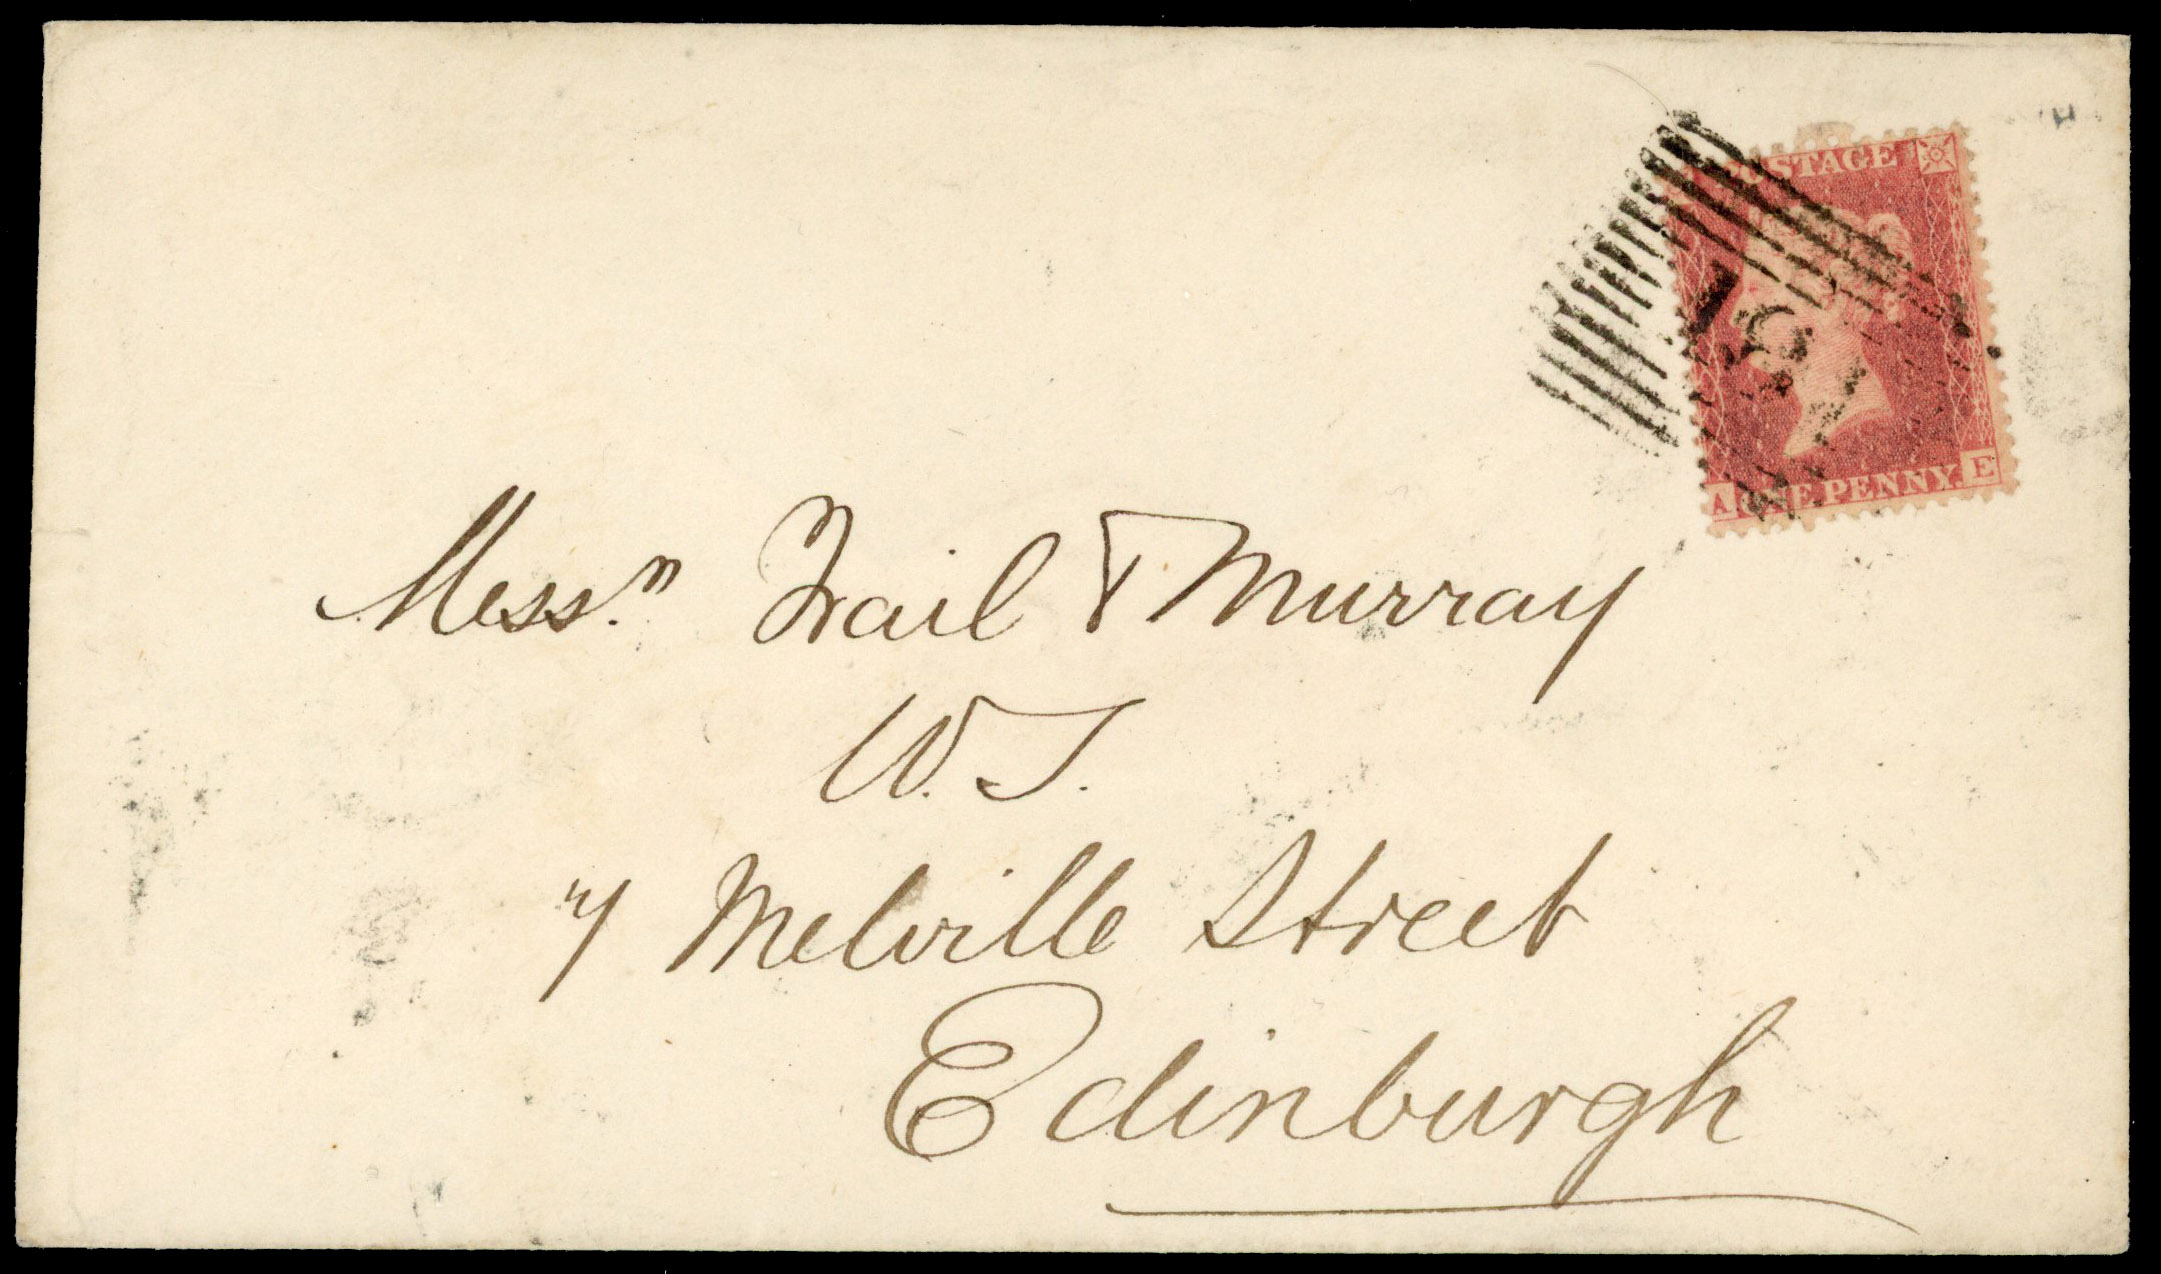 POSTAGE
A ONE PENNY. E
Messrs. Trail & Murray
W.S.
7 Melville Street
Edinburgh